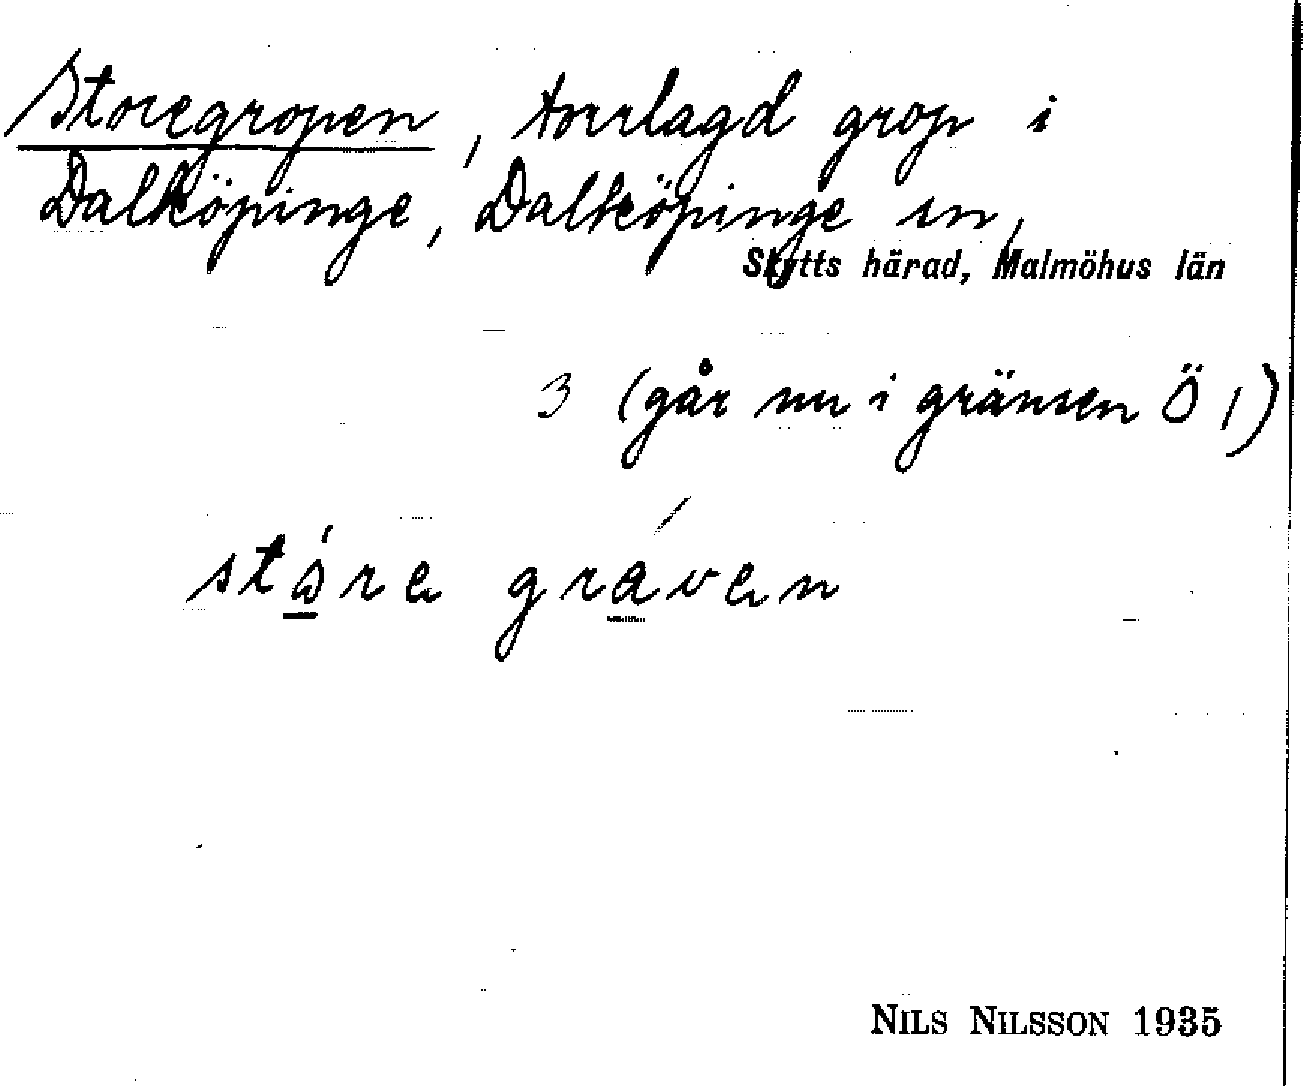 Storegropen, torrlagd grop i
Dalköpinge, Dalköpinge sn,
Skytts härad, Malmöhus län
3 (går nu i gränsen Ö 1)
ståre graven
NILS NILSSON 1935